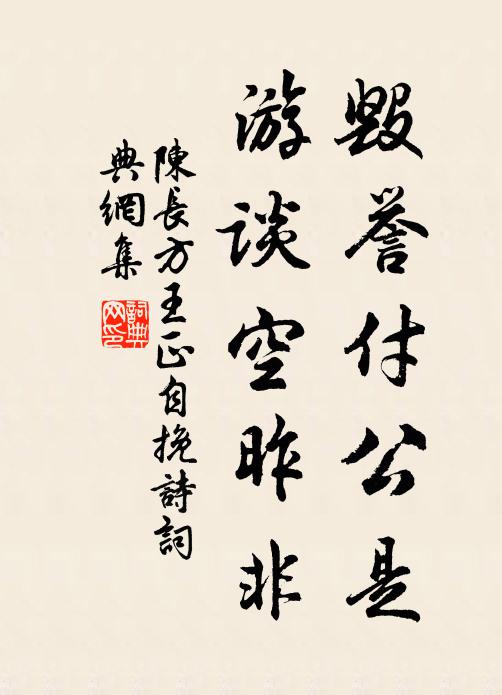 毀譽付公是
游談空昨非
陳長方王正自挽詩詞
典網集
詞典
网印